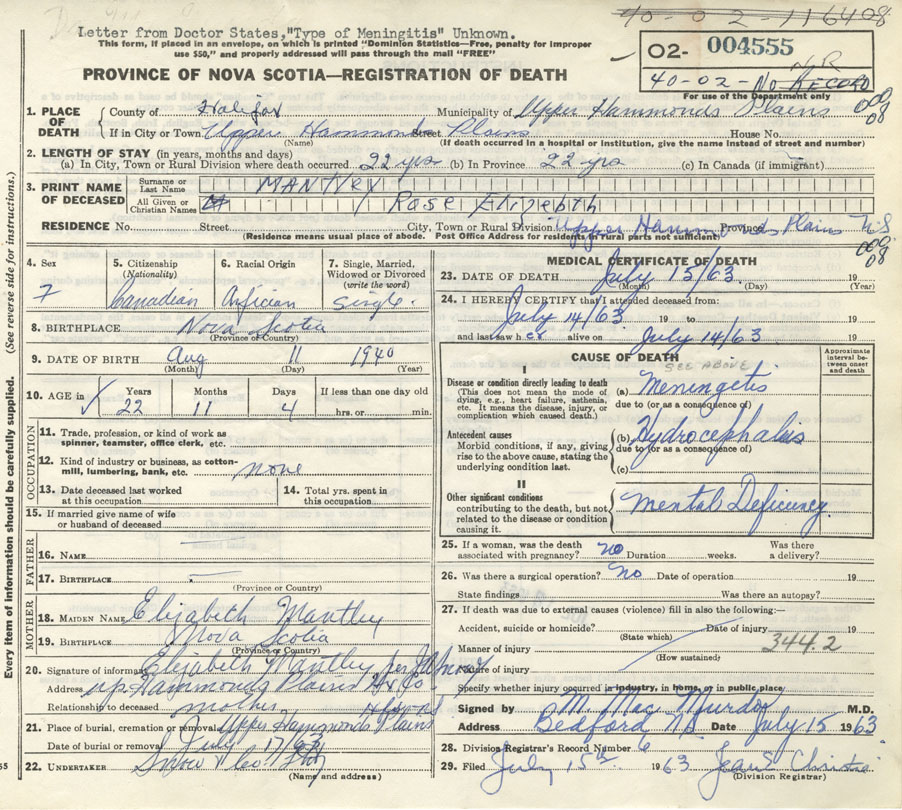 40-02-116408
Letter from Doctor States, "Type of Meningitis" Unknown.
This form, if placed in an envelope, on which is printed "Dominion Statistics—Free, penalty for improper
use $50," and properly addressed will pass through the mail "FREE"
PROVINCE OF NOVA SCOTIA—REGISTRATION OF DEATH
02- 004555
N.R
40-02-No RECORD
For use of the Department only
1. PLACE OF DEATH County of Halifax Municipality of Upper Hammonds Plains 000 08
If in City or Town Upper Hammonds Plains Street House No.
(Name) (If death occurred in a hospital or institution, give the name instead of street and number)
2. LENGTH OF STAY (in years, months and days)
(a) In City, Town or Rural Division where death occurred 22 yrs (b) In Province 22 yrs (c) In Canada (if immigrant)
3. PRINT NAME OF DECEASED Surname or Last Name MANTLEY
All Given or Christian Names Rose Elizebth
RESIDENCE No. Street City, Town or Rural Division Upper Hammonds Plains Province N.S
(Residence means usual place of abode. Post Office Address for residents in rural parts not sufficient)
000 08
4. Sex 5. Citizenship (Nationality) 6. Racial Origin 7. Single, Married, Widowed or Divorced (write the word)
F Canadian African Single.
8. BIRTHPLACE Nova Scotia
(Province or Country)
9. DATE OF BIRTH Aug 11 1940
(Month) (Day) (Year)
10. AGE in Years Months Days If less than one day old
22 11 4 hrs. or min.
OCCUPATION
11. Trade, profession or kind of work as spinner, teamster, office clerk, etc.
12. Kind of industry or business, as cotton-mill, lumbering, bank, etc. none
13. Date deceased last worked at this occupation 14. Total yrs. spent in this occupation
15. If married give name of wife or husband of deceased
FATHER
16. NAME
17. BIRTHPLACE
(Province or Country)
MOTHER
18. MAIDEN NAME Elizabeth Mantley
19. BIRTHPLACE Nova Scotia
(Province or Country)
20. Signature of informant Elizabeth Mantley per
Address up. Hammonds Plains Hx Co
Relationship to deceased mother
21. Place of burial, cremation or removal Upper Hammonds Plains
Date of burial or removal July 17/63
22. UNDERTAKER Snow & Co Ltd
(Name and address)
MEDICAL CERTIFICATE OF DEATH
23. DATE OF DEATH July 15/63 19
(Month) (Day) (Year)
24. I HEREBY CERTIFY that I attended deceased from:
July 14/63 19 to 19
and last saw h er alive on July 14/63 19
CAUSE OF DEATH
SEE ABOVE
Approximate interval between onset and death
I
Disease or condition directly leading to death (a) Meningetis
(This does not mean the mode of dying, e.g., heart failure, asthenia, etc. It means the disease, injury, or complication which caused death.)
due to (or as a consequence of)
Antecedent causes (b) Hydrocephalis
Morbid conditions, if any, giving rise to the above cause, stating the underlying condition last.
due to (or as a consequence of)
(c)
II
Other significant conditions Mental Deficiency
contributing to the death, but not related to the disease or condition causing it.
25. If a woman, was the death associated with pregnancy? no Duration weeks. Was there a delivery?
26. Was there a surgical operation? No Date of operation 19
State findings Was there an autopsy?
27. If death was due to external causes (violence) fill in also the following:—
Accident, suicide or homicide? Date of injury 19
(State which)
Manner of injury 344.2
(How sustained)
Nature of injury
Specify whether injury occurred in industry, in home, or in public place
Signed by M. Mac M.D.
Address Bedford N.S. Date July 15 1963
28. Division Registrar's Record Number 6
29. Filed July 15th 1963 Jean S.
(Division Registrar)
Every item of information should be carefully supplied. (See reverse side for instructions.)
55